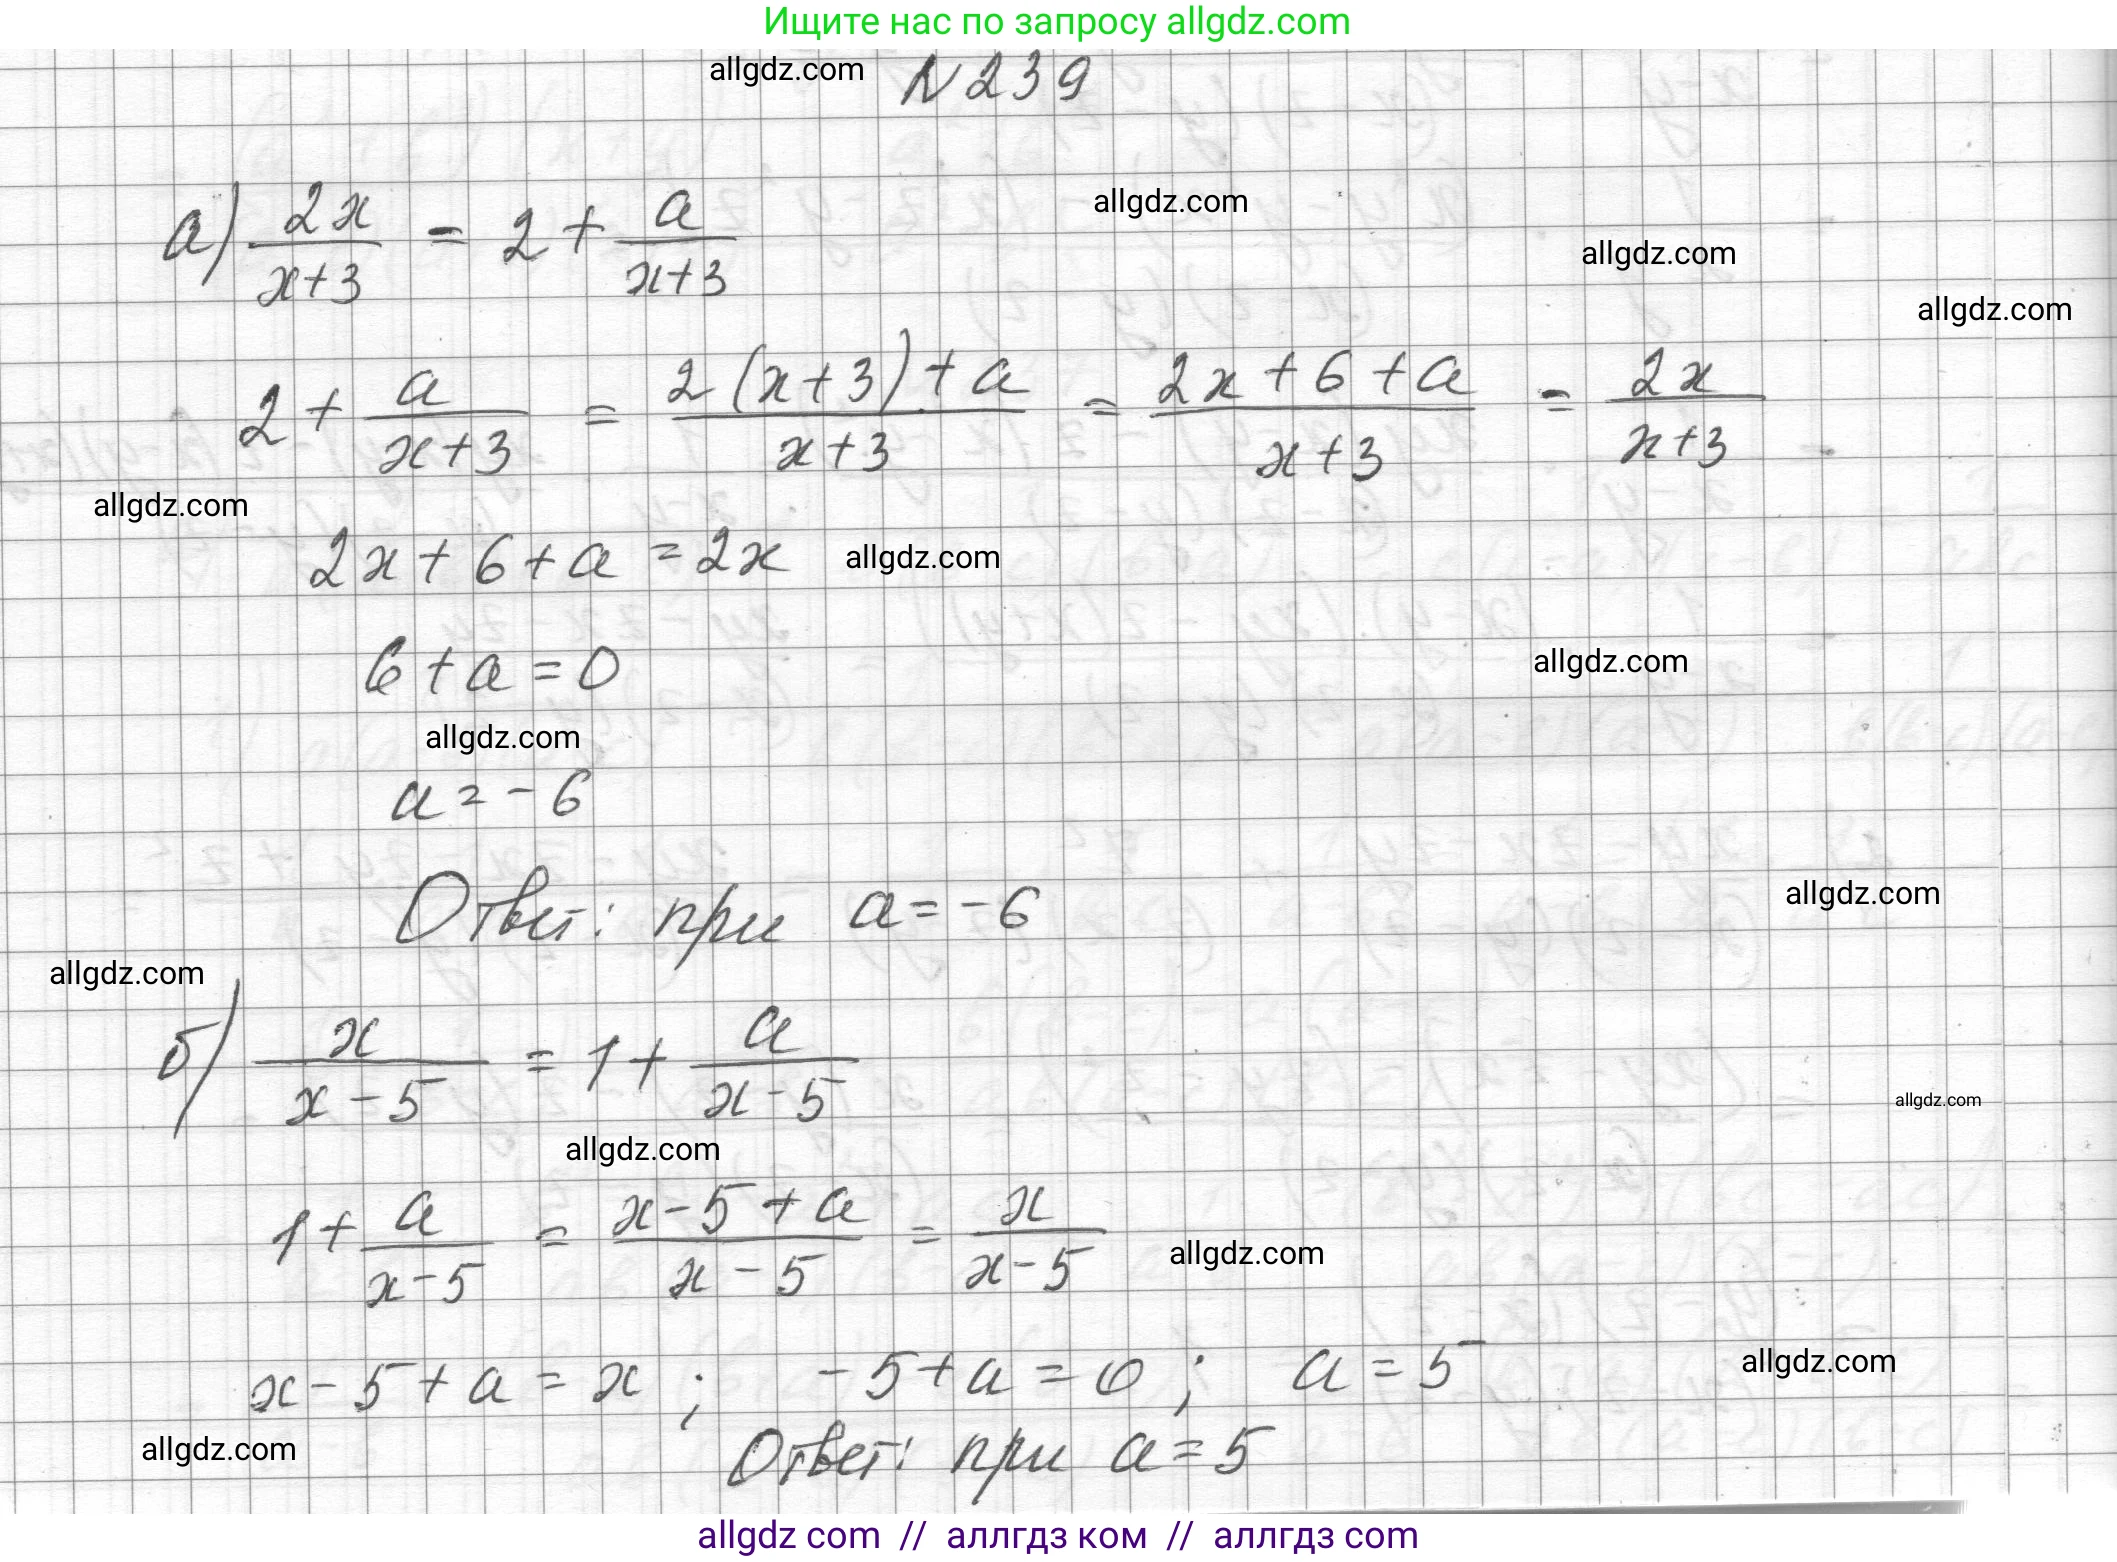 Ищите нас по запросу allgdz.com
allgdz.com N 239
а) 2x/(x+3) = 2 + a/(x+3)
allgdz.com
allgdz.com
allgdz.com
2 + a/(x+3) = (2(x+3)+a)/(x+3) = (2x+6+a)/(x+3) = 2x/(x+3)
allgdz.com
2x + 6 + a = 2x allgdz.com
6 + a = 0
allgdz.com
allgdz.com
a = -6
Ответ: при a = -6
allgdz.com
allgdz.com
б) x/(x-5) = 1 + a/(x-5)
allgdz.com
allgdz.com
1 + a/(x-5) = (x-5+a)/(x-5) = x/(x-5)
allgdz.com
x - 5 + a = x ; -5 + a = 0 ; a = 5
allgdz.com
allgdz.com
Ответ: при a = 5
allgdz com // аллгдз ком // аллгдз com